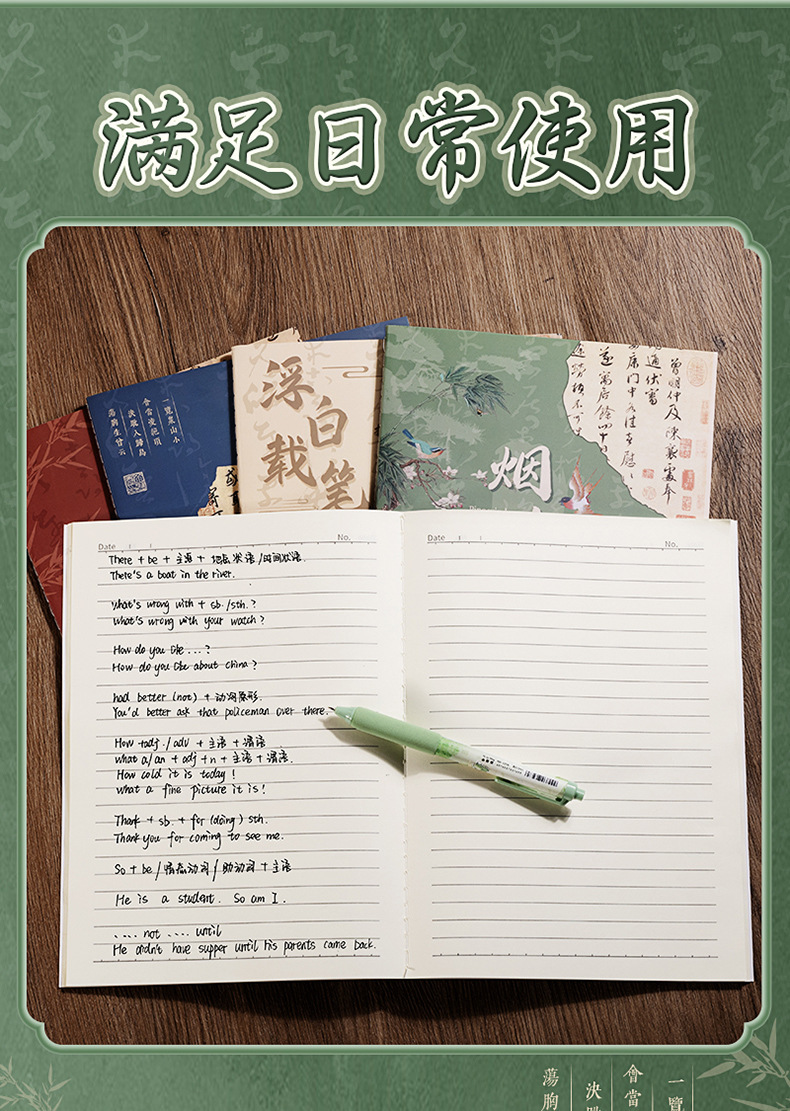 满足日常使用
一览众山小
会当凌绝顶
荡胸生曾云
浮白载笔
烟
曾明仲及陈
Date
No.
There + be + 主语 + 地点状语/时间状语.
There's a boat in the river.
What's wrong with + sb./sth.?
What's wrong with your watch?
How do you like ...?
How do you like about china?
had better (not) + 动词原形.
You'd better ask that policeman over there.
How +adj./adv + 主语 + 谓语
what a/an + adj + n + 主语 + 谓语.
How cold it is today!
what a fine picture it is!
Thank + sb. + for (doing) sth.
Thank you for coming to see me.
So + be/情态动词/助动词 + 主语
He is a student. So am I.
.... not .... until
He didn't have supper until his parents came back.
Date
No.
一覽
會當
決
蕩胸